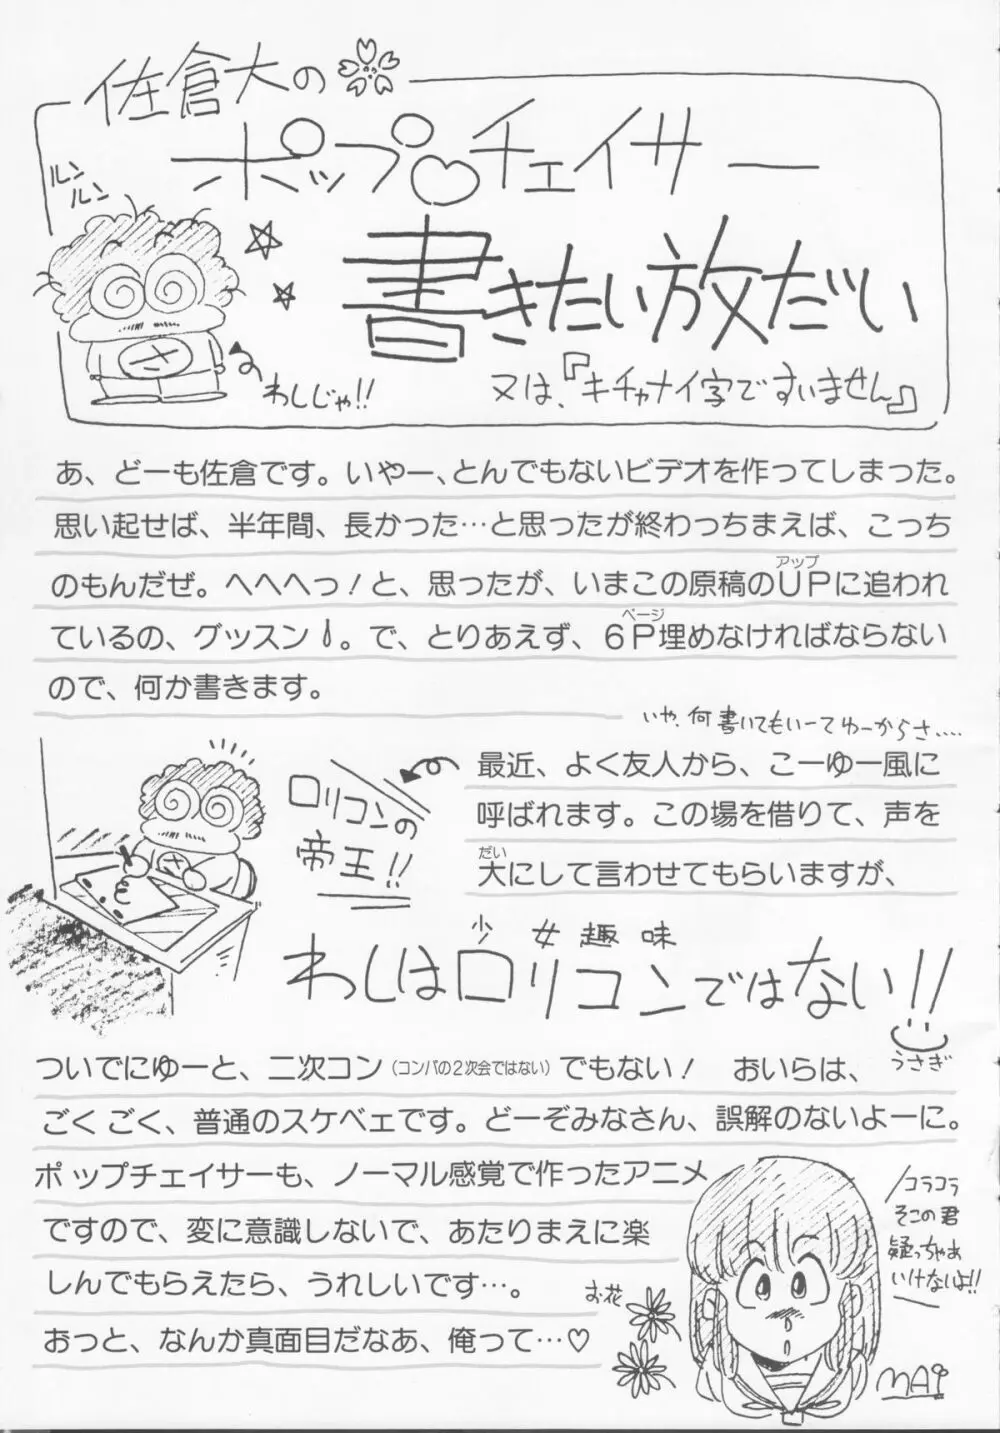 佐倉大の
ポップ♡チェイサー
書きたい放だい
又は、『キチャナイ字ですいません』
ルンルン
わしじゃ!!
あ、どーも佐倉です。いやー、とんでもないビデオを作ってしまった。
思い起せば、半年間、長かった…と思ったが終わっちまえば、こっち
のもんだぜ。へへへっ！と、思ったが、いまこの原稿のUP(アップ)に追われ
ているの、グッスン。で、とりあえず、6P(ページ)埋めなければならない
ので、何か書きます。
いや、何書いてもいーてゆーからさ….
ロリコンの
帝王!!
最近、よく友人から、こーゆー風に
呼ばれます。この場を借りて、声を
大(だい)にして言わせてもらいますが、
少女趣味
わしはロリコンではない!!
うさぎ
ついでにゆーと、二次コン（コンパの2次会ではない）でもない！ おいらは、
ごくごく、普通のスケベェです。どーぞみなさん、誤解のないよーに。
ポップチェイサーも、ノーマル感覚で作ったアニメ
ですので、変に意識しないで、あたりまえに楽
しんでもらえたら、うれしいです…。
おっと、なんか真面目だなあ、俺って…♡
お花
コラコラ
そこの君
疑っちゃあ
いけないよ!!
MAI